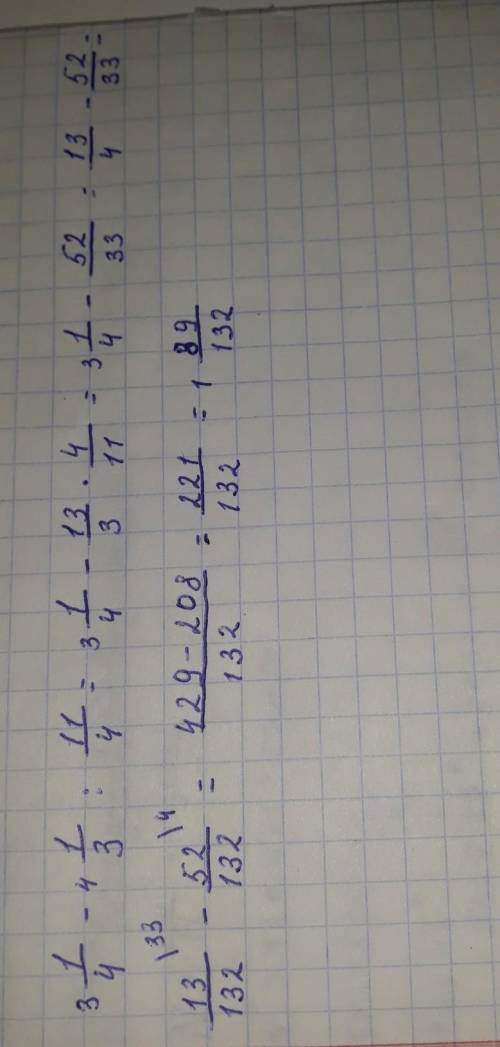 3 1/4 - 4 1/3 : 11/4 = 3 1/4 - 13/3 · 4/11 = 3 1/4 - 52/33 = 13/4 - 52/33 =
13/132 \33 - 52/132 \4 = 429-208/132 = 221/132 = 1 89/132